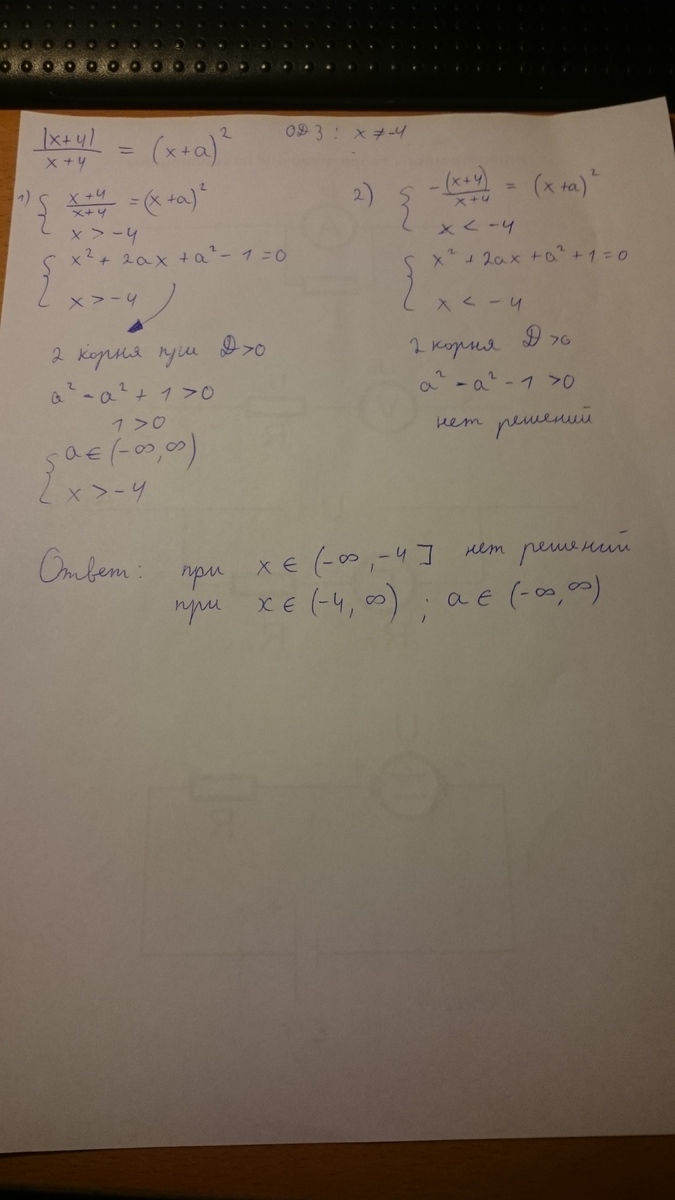 |x+4| / x+4 = (x+a)² ОДЗ: x ≠ -4
1) { x+4 / x+4 = (x+a)²
x > -4
{ x² + 2ax + a² - 1 = 0
x > -4
2 корня при D > 0
a² - a² + 1 > 0
1 > 0
{ a ∈ (-∞, ∞)
x > -4
2) { -(x+4) / x+4 = (x+a)²
x < -4
{ x² + 2ax + a² + 1 = 0
x < -4
2 корня D > 0
a² - a² - 1 > 0
нет решений
Ответ: при x ∈ (-∞, -4] нет решений
при x ∈ (-4, ∞) ; a ∈ (-∞, ∞)